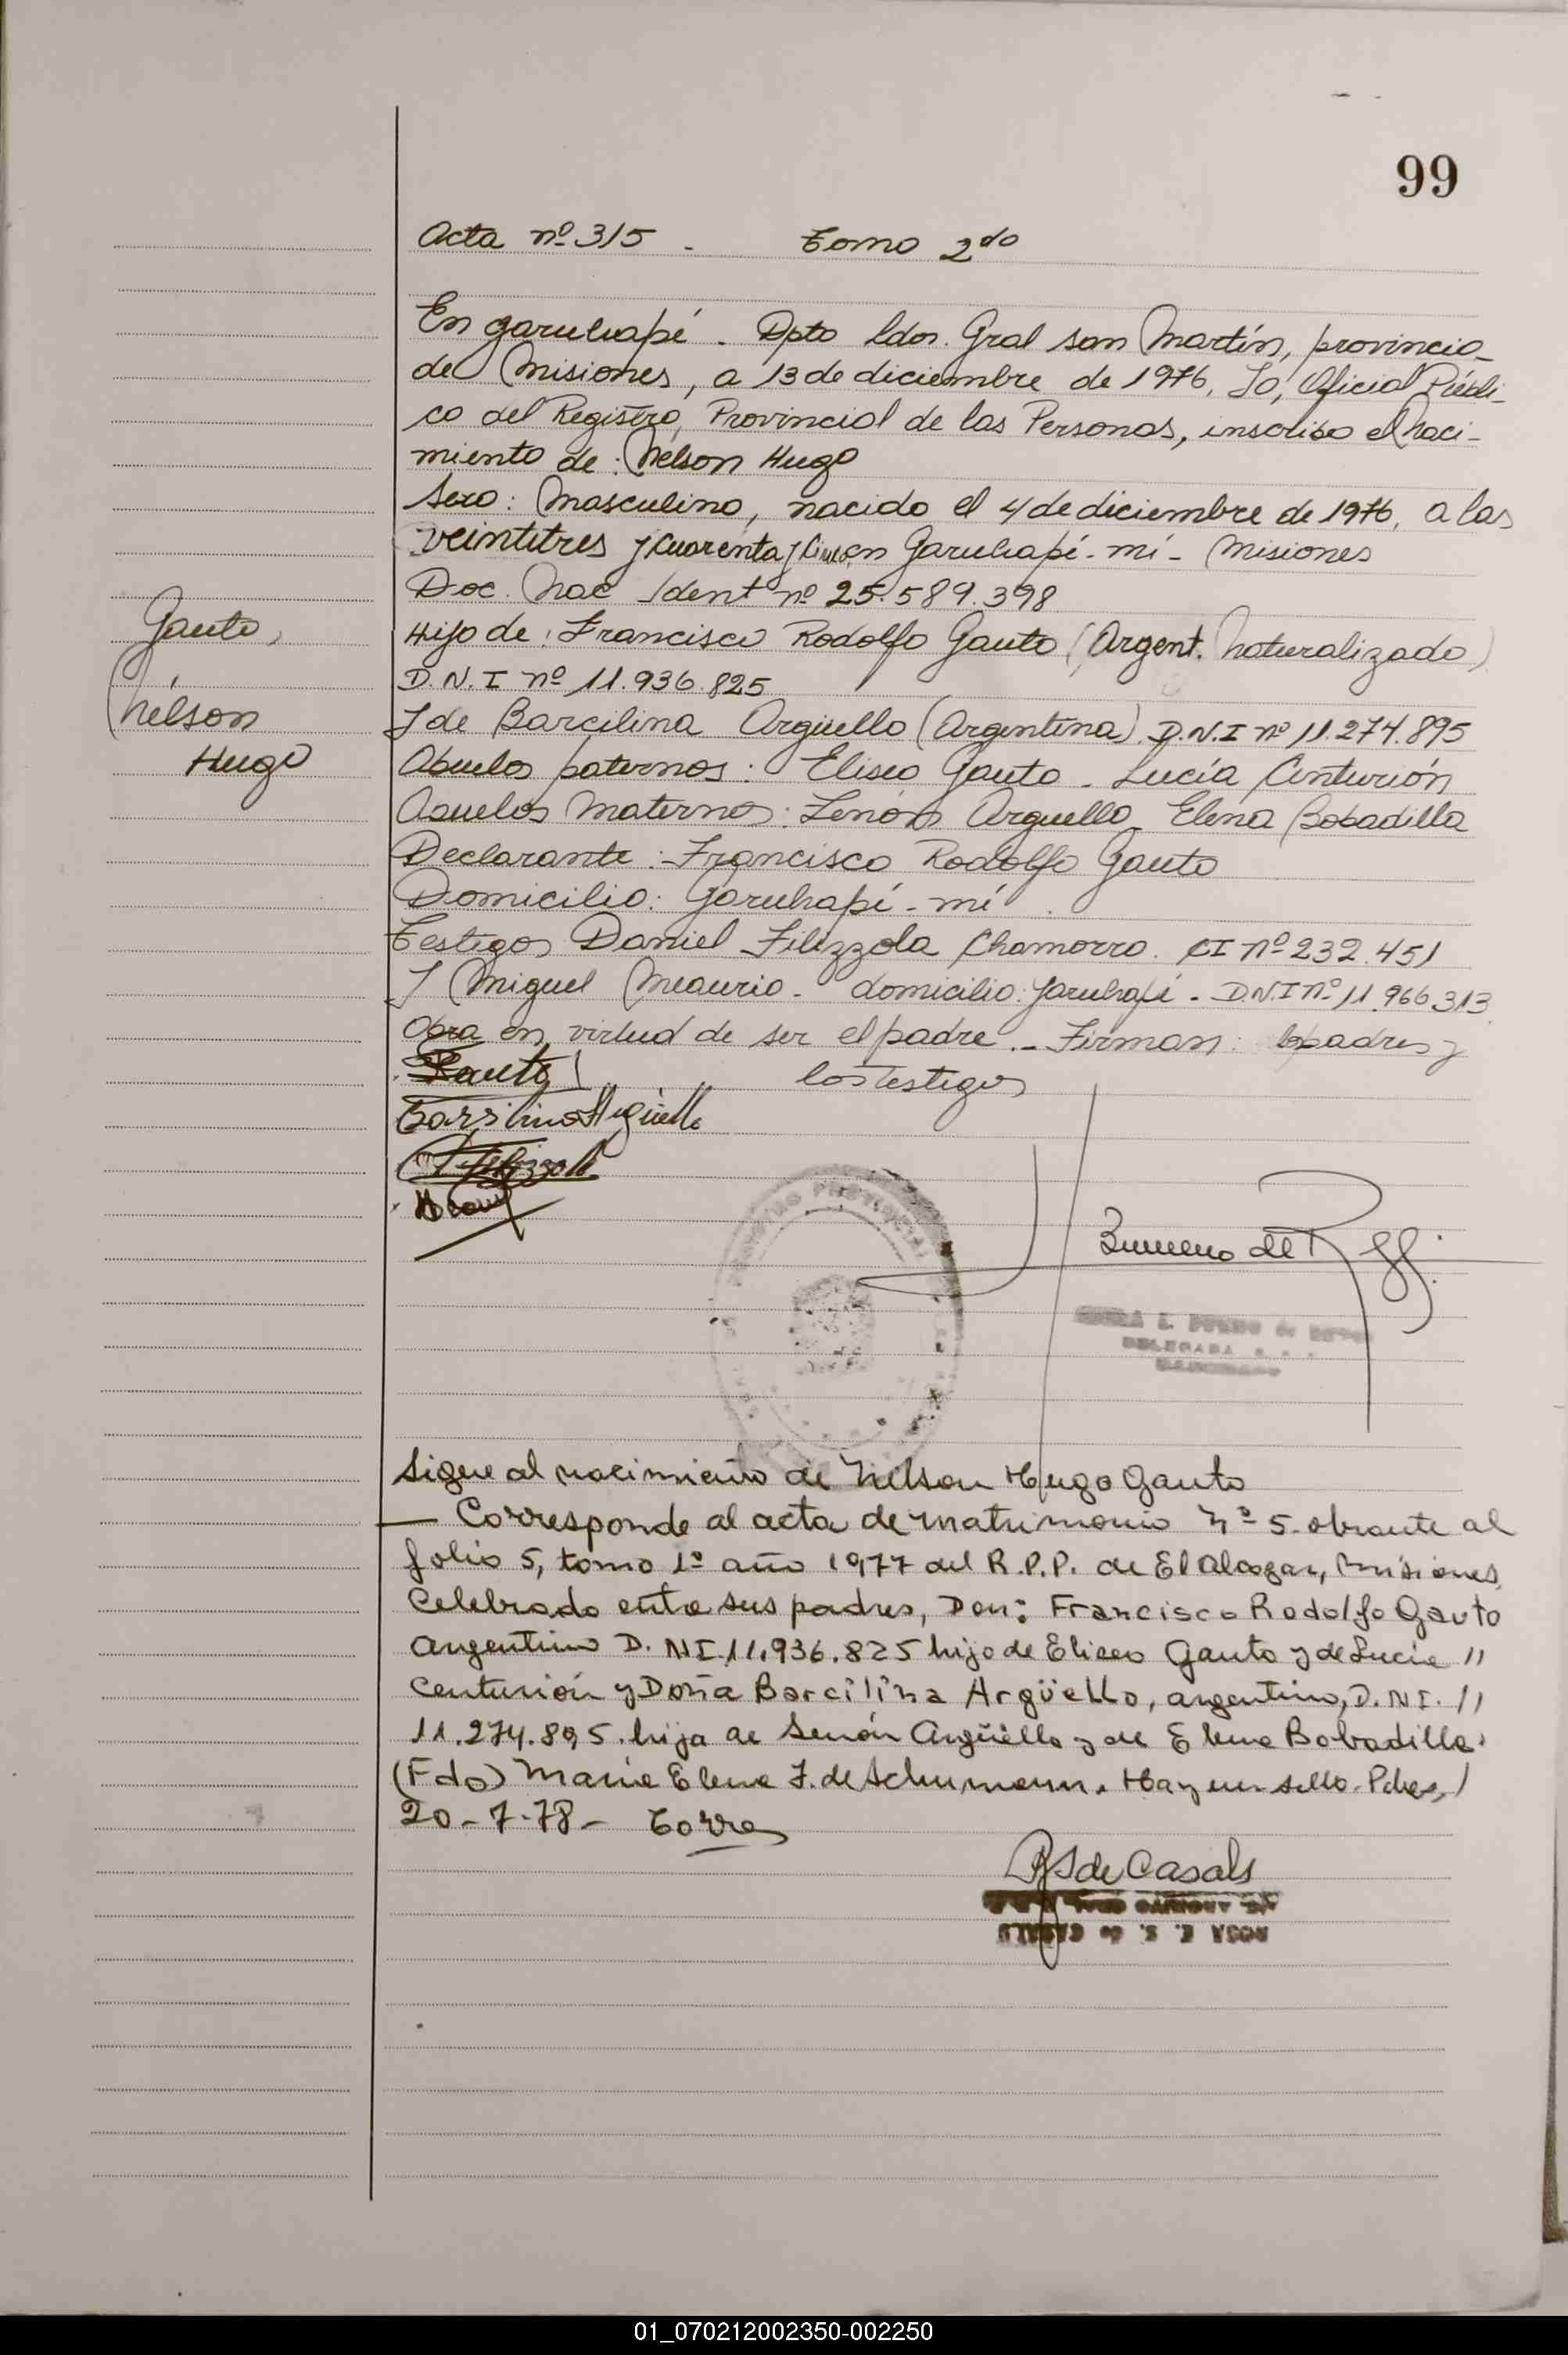 99
Acta nº 315 - Tomo 2do
En Garuhapé. Dpto Ldor. Gral San Martín, provincia
de Misiones, a 13 de diciembre de 1976, Yo, Oficial Públi-
co del Registro Provincial de las Personas, inscribo el naci-
miento de: Nélson Hugo
Sexo: Masculino, nacido el 4 de diciembre de 1976, a las
veintitres y cuarenta y cinco, en Garuhapé-mí - Misiones
Doc. Nac Ident nº 25.589.398
Gauto,
Nélson
Hugo
Hijo de: Francisco Rodolfo Gauto (Argent. Naturalizado)
D.N.I nº 11.936.825
Y de Barcilina Argüello (Argentina) D.N.I nº 11.274.895
Abuelos paternos: Eliseo Gauto - Lucía Centurión
Abuelos Maternos: Zenón Arguello - Elena Bobadilla
Declarante: Francisco Rodolfo Gauto
Domicilio: Garuhapé-mí.
Testigos Daniel Filizzola Chamorro. CI nº 232.451
Y Miguel Meaurio - domicilio: Garuhapé - D.N.I nº 11.966.313
Obra en virtud de ser el padre.- Firman: los padres y
los testigos
Gauto
Barsilina Argüello
Filizzola
REGISTRO PROVINCIAL
de
DELEGADA
Sigue al nacimiento de Nélson Hugo Gauto
— Corresponde al acta de matrimonio Nº 5 obrante al
folio 5, tomo 1º año 1977 del R.P.P. de El Alcazar, Misiones,
Celebrado entre sus padres, Don: Francisco Rodolfo Gauto
argentino D.NI.11.936.825 hijo de Eliseo Gauto y de Lucía //
Centurión y Doña Barcilina Argüello, argentina, D.NI. //
11.274.895. hija de Senón Argüello y de Elena Bobadilla.
(Fdo) María Elena J. de Schumann. Hay un sello. Pdas,
20-7-78- Torres
RS de Casals
ROSA E. S. de CASALS
01_070212002350-002250